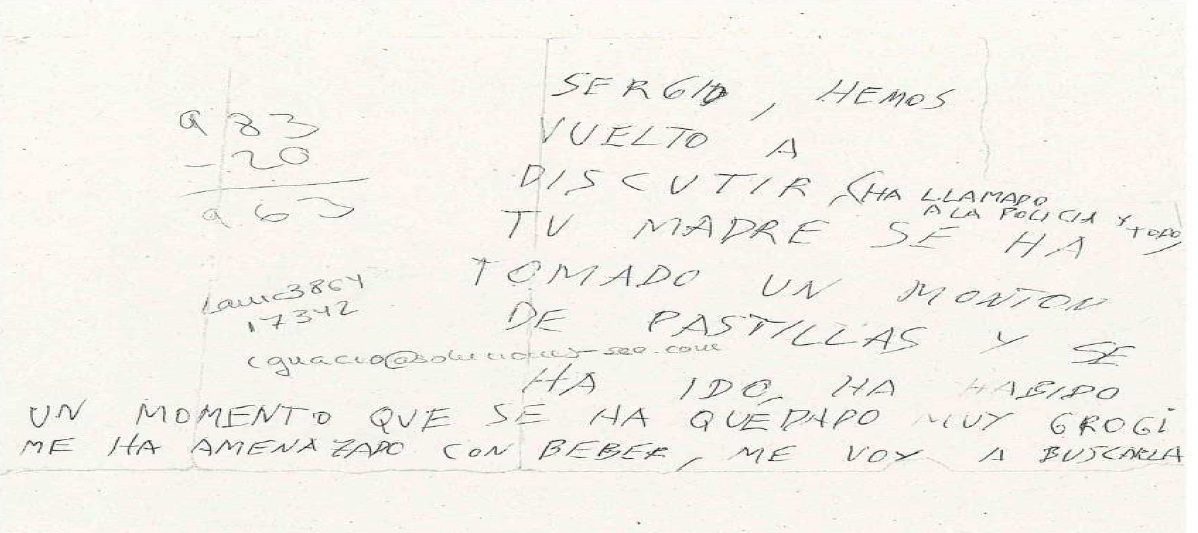 SERGIO, HEMOS
VUELTO A
DISCUTIR, (HA LLAMADO
A LA POLICIA Y TODO)
TU MADRE SE HA
TOMADO UN MONTON
DE PASTILLAS Y SE
HA IDO, HA HABIDO
UN MOMENTO QUE SE HA QUEDADO MUY GROGI
ME HA AMENAZADO CON BEBER, ME VOY A BUSCARLA
983
-20
963
17342